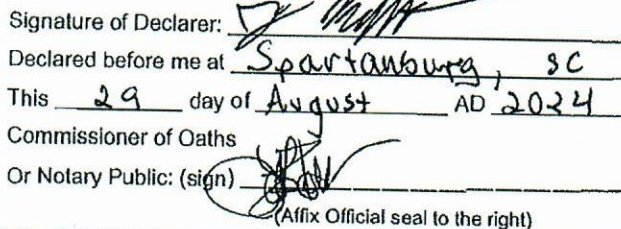 Signature of Declarer:
Declared before me at Spartanburg, SC
This 29 day of August AD 2024
Commissioner of Oaths
Or Notary Public: (sign)
(Affix Official seal to the right)